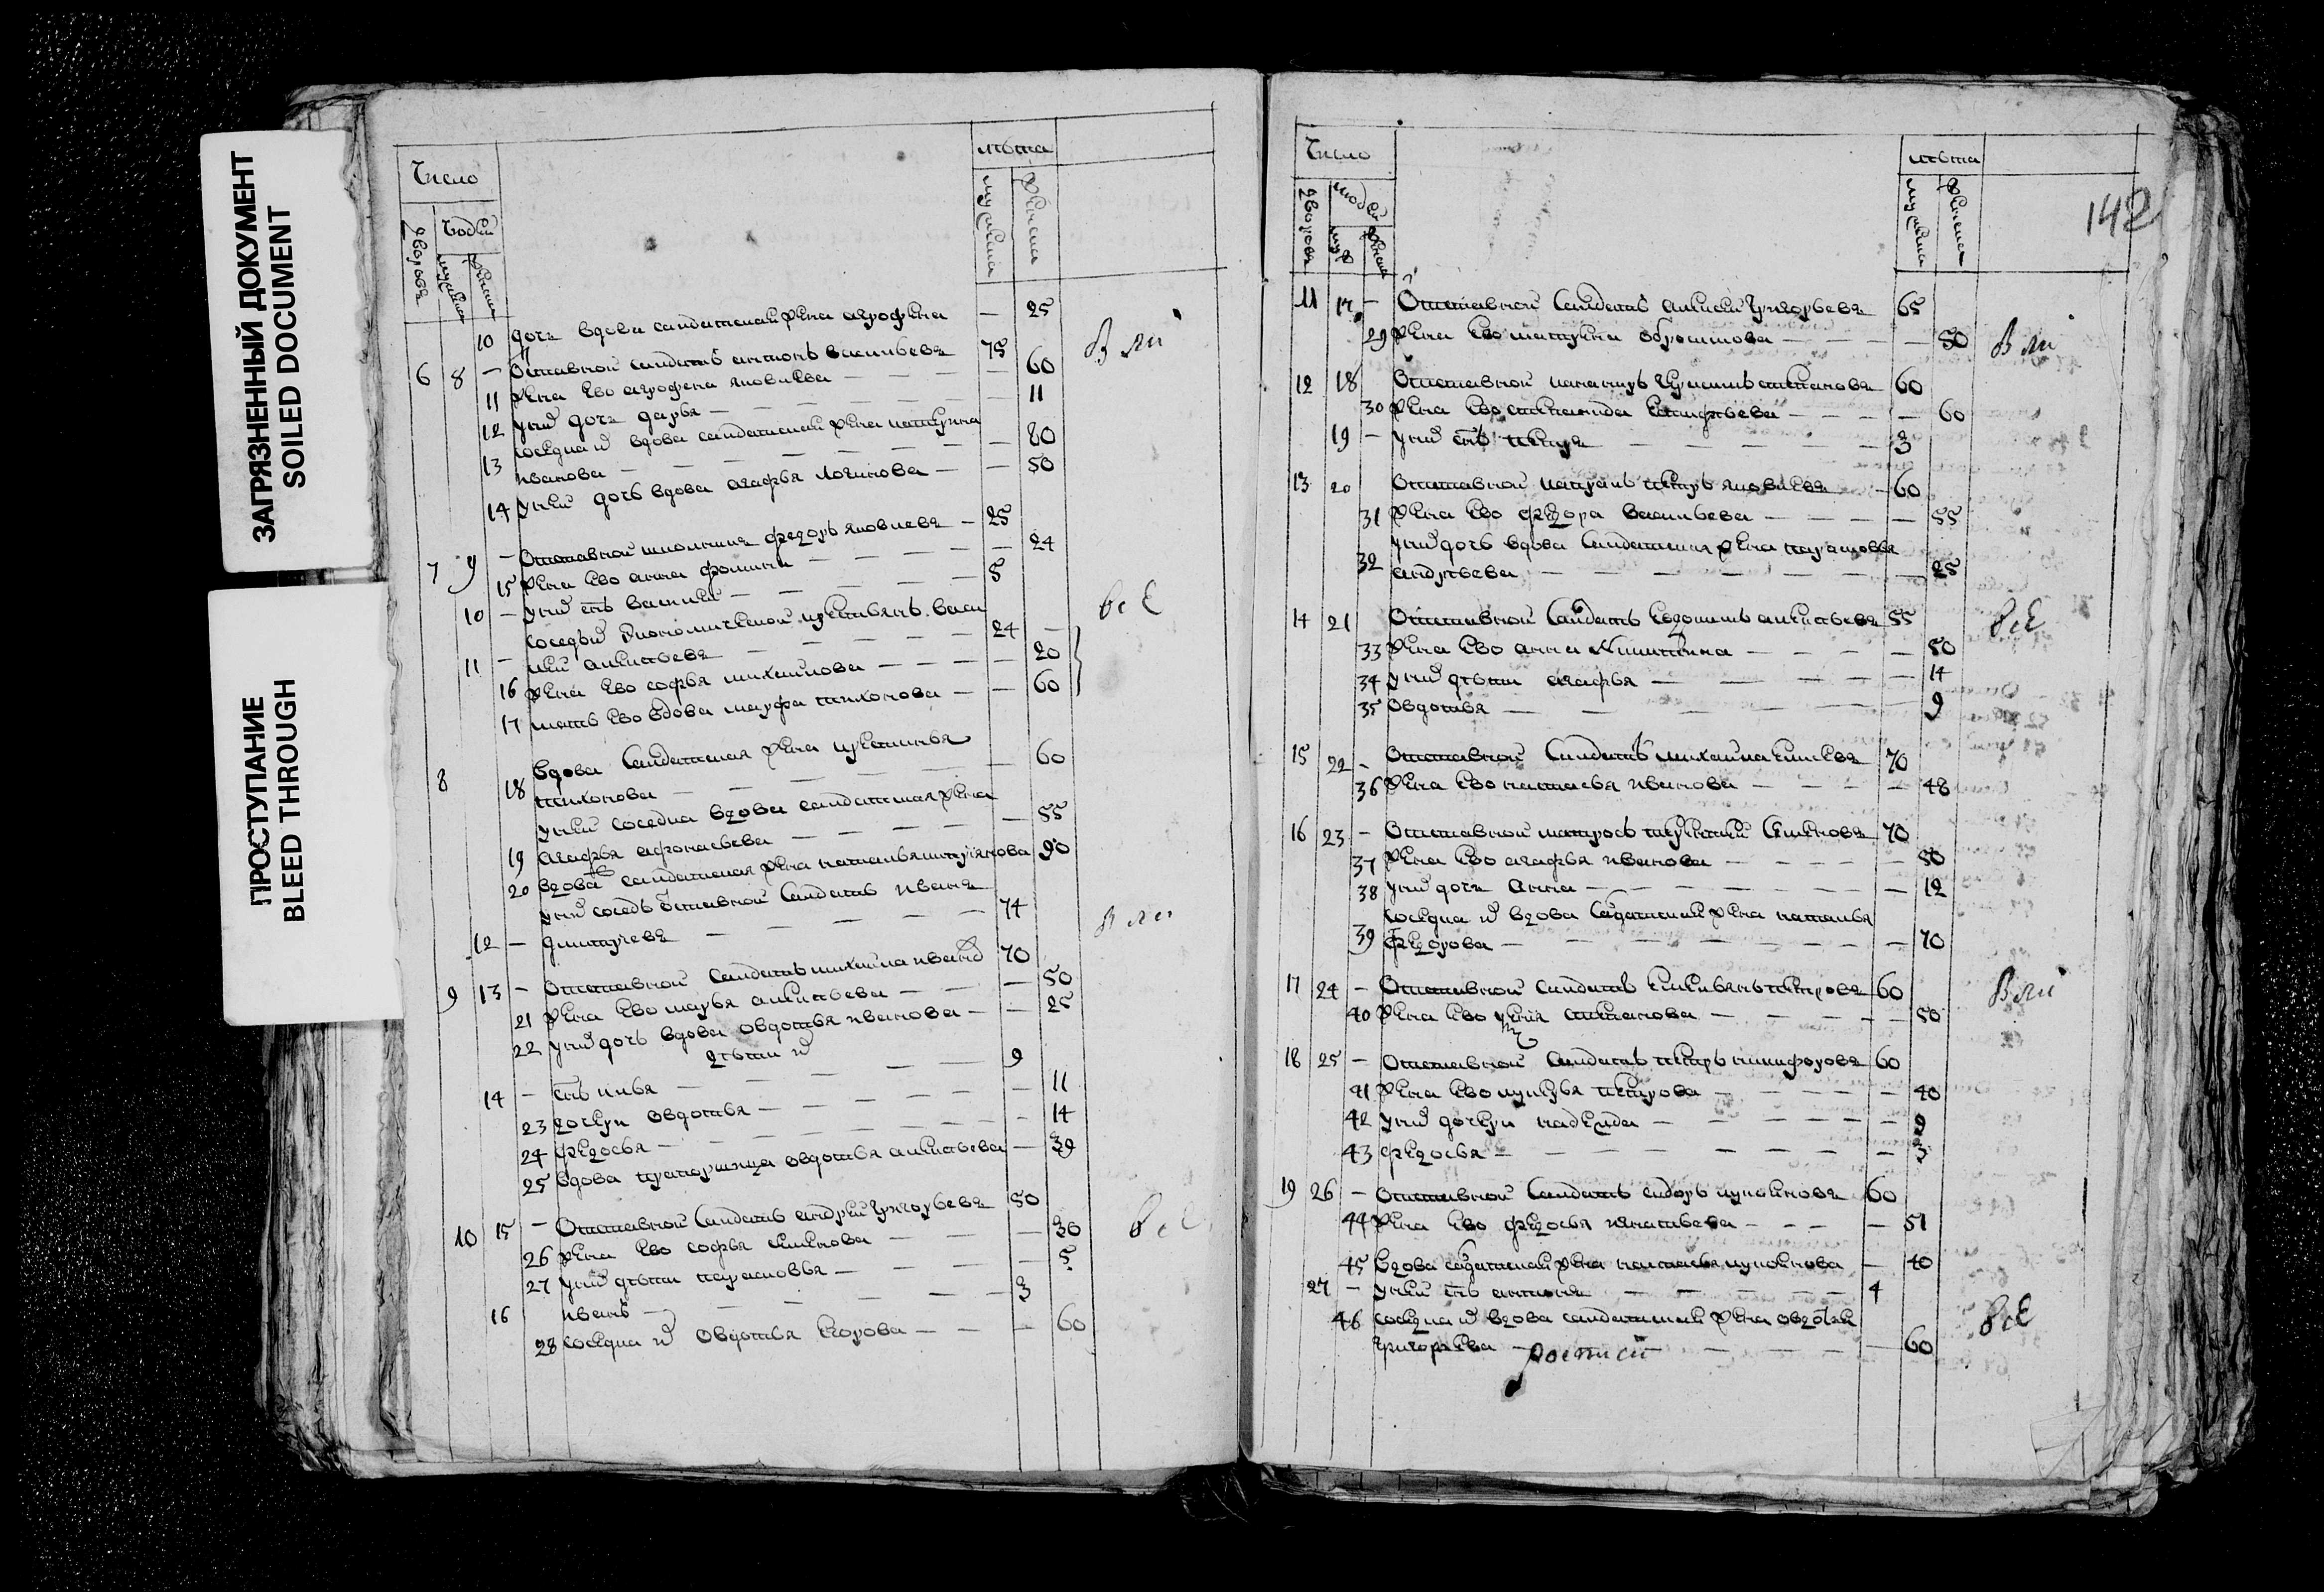 ЗАГРЯЗНЕННЫЙ ДОКУМЕНТ
SOILED DOCUMENT
ПРОСТУПАНИЕ
BLEED THROUGH
Число
лѣта
дворовъ
людей
мужеска
женска
мужеска
женска
10 дочь вдова салдатская жена агрофена — 25
6 8 — Отставной салдатъ антонъ васильевъ 75
11 жена ево агрофена яковлева — 60
12 унихъ дочь дарья — 11
соседка ихъ вдова салдатская жена катерина
13 иванова — 80
14 унеи дочь вдова агафья логинова — 50
7 9 — Отставной школникъ федоръ яковлевъ — 25
15 жена ево анна фомина — 24
10 — унихъ снъ василей — 5
все
11 — лей алексѣевъ 24 —
16 жена ево софья михаилова — 20
17 мать ево вдова марфа тихонова — 60
вдова салдатская жена
8 18 тихонова — 60
унеи соседка вдова салдатская жена
19 агафья афонасьева — 55
20 вдова салдатская жена наталья 90
унихъ соседъ отставной салдатъ иванъ
12 — дмитриевъ — 74
9 13 — Отставной салдатъ михаила ивановъ 70
21 жена ево марья алексѣева — 50
22 унихъ дочь вдова овдотья иванова — 25
дѣти ихъ
14 — снъ илья — 9
23 дочери овдотья — 11
24 федосья — 14
25 вдова прапорщица овдотья алексѣева — 39
10 15 — Отставной салдатъ андрей григорьевъ 50
26 жена ево софья семенова — 30
27 унихъ дѣти парасковья — 5
16 иванъ — 3
28 соседка ихъ овдотья егорова — 60
все
142
Число
лѣта
дворовъ
людей
муж
женска
мужеска
женска
11 17 — Отставной салдатъ алексей григорьевъ 65
29 жена ево катерина — 50
12 18 Отставной степановъ 60
30 жена ево степанида — 60
19 — унихъ снъ петръ — 3
13 20 Отставной капралъ петръ яковлевъ — 60
31 жена ево федора васильева — 55
унихъ дочь вдова салдатская жена парасковья
32 андрѣева — 25
14 21 Отставной салдатъ евдокимъ алексѣевъ 55
33 жена ево анна никитина — 50
34 унихъ дѣти агафья — 14
35 овдотья — 9
все
15 22 — Отставной салдатъ михаила 70
36 жена ево наталья иванова — 48
16 23 — Отставной матросъ семеновъ 70
37 жена ево агафья иванова — 50
38 унихъ дочь анна — 12
соседка ихъ вдова салдатская жена наталья
39 федорова — 70
17 24 — Отставной салдатъ петровъ 60
40 жена ево степанова — 50
18 25 — Отставной салдатъ петръ никифоровъ 60
41 жена ево лукерья петрова — 40
42 унихъ дочери надежда — 9
43 федосья — 3
19 26 — Отставной салдатъ сидоръ лукояновъ 60
44 жена ево федосья игнатьева — 51
45 вдова салдатская жена наталья лукоянова — 40
27 — унеи снъ антонъ — 4
46 соседка ихъ вдова салдатская жена овдотья
григорьева — 60
все
росписи